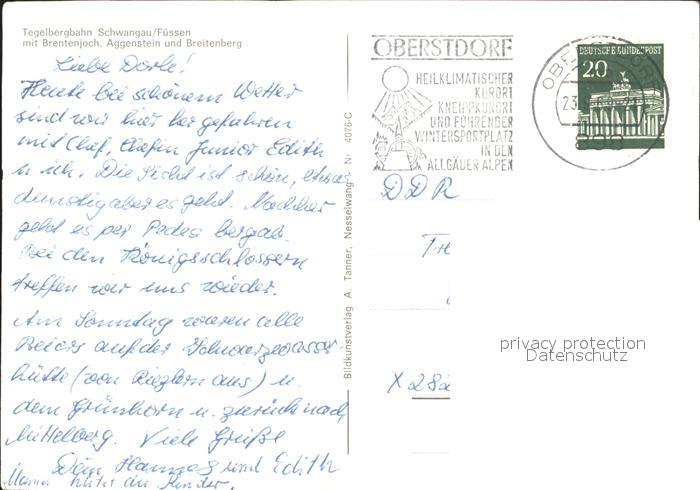 Tegelbergbahn Schwangau/Füssen
mit Brentenjoch, Aggenstein und Breitenberg
Liebe Dorle!
Heute bei schönem Wetter
sind wir hier her gefahren
mit Chef, Chefin Junior Edith
u. ich. Die Sicht ist schön, etwas
dunstig aber es geht. Nachher
geht es per Pedes bergab.
Bei den Königsschlössern
treffen wir uns wieder.
Am Sonntag waren alle
auf der Schwarzwasser-
hütte (von Riezlern aus) u.
dem Grünhorn u. zurück nach
Mittelberg. Viele Grüße
Dein Hannes und Edith
Mama hütet die Kinder.
Bildkunstverlag A. Tanner, Nesselwang - Nr. 4076-C
OBERSTDORF
HEILKLIMATISCHER
KURORT
KNEIPPKURORT
UND FÜHRENDER
WINTERSPORTPLATZ
IN DEN
ALLGÄUER ALPEN
OBERSTDORF
23.
898
DEUTSCHE BUNDESPOST
20
DDR
X 282
privacy protection
Datenschutz